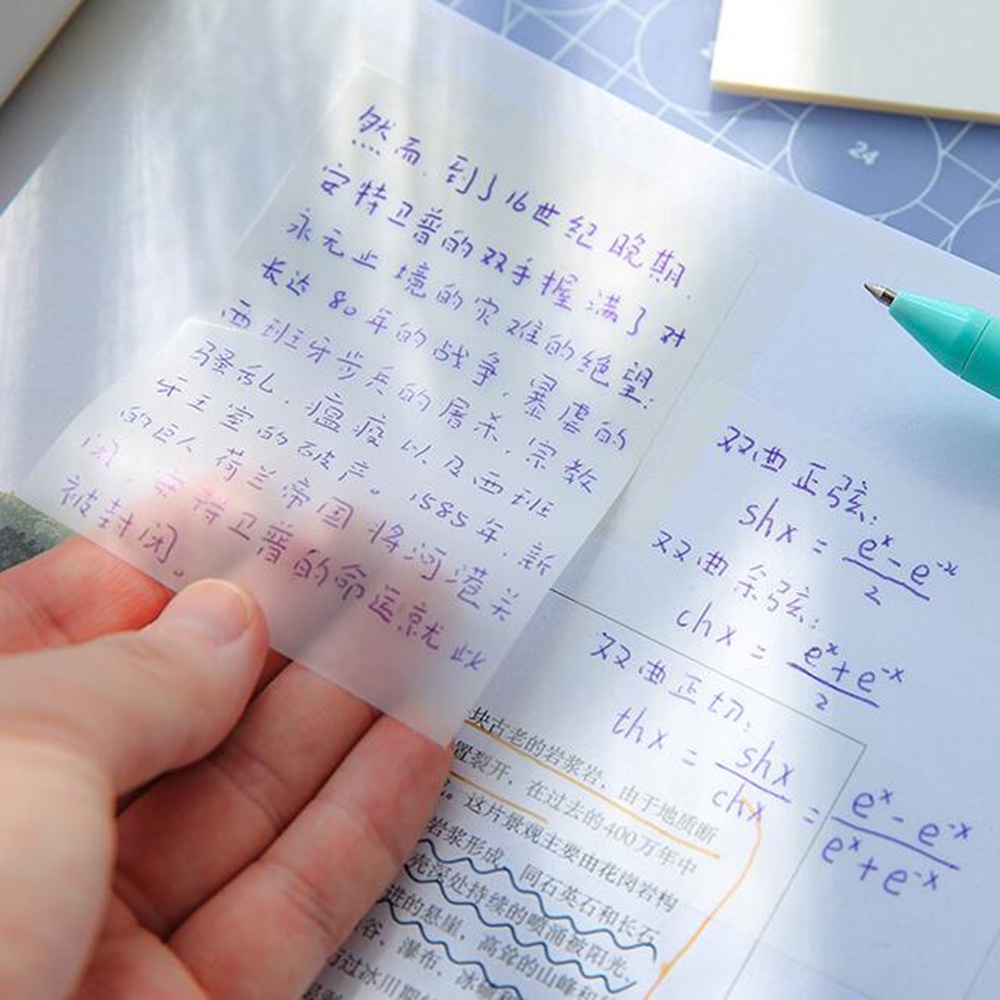 24
然而,到了16世纪晚期.
安特卫普的双手握满了对
永无止境的灾难的绝望:
长达80年的战争,暴虐的
西班牙步兵的屠杀,宗教
骚乱,瘟疫以及西班
牙王室的破产。1585年,新
的巨人荷兰帝国将河港关
闭,安特卫普的命运就此
被封闭。
双曲正弦:
shx = (e^x - e^-x) / 2
双曲余弦:
chx = (e^x + e^-x) / 2
双曲正切:
thx = shx / chx = (e^x - e^-x) / (e^x + e^-x)
块古老的岩浆岩,由于地质断
置裂开,在过去的400万年中
。这片景观主要由花岗岩构
岩浆形成,同石英石和长石
壳深处持续的喷涌被阳光、
进的悬崖,高耸的山峰和
谷、瀑布、冰
过冰川期